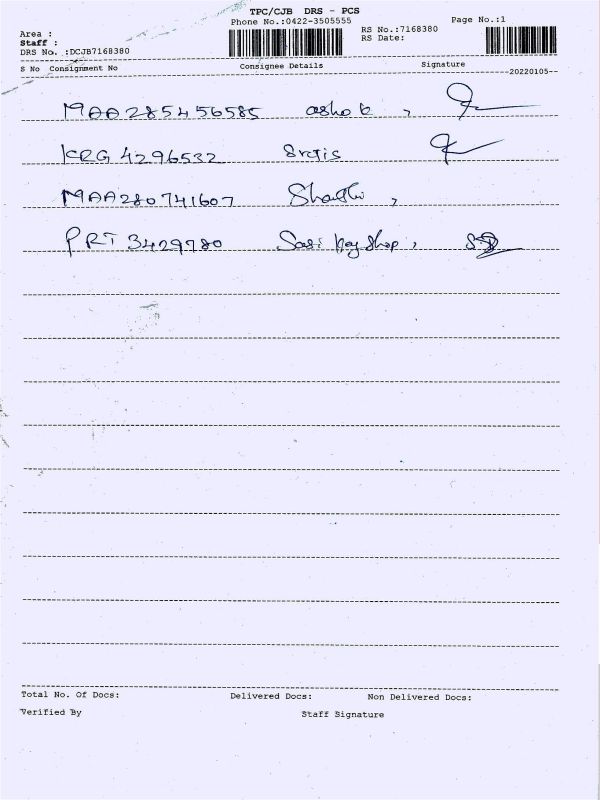 TPC/CJB DRS - PCS
Phone No.:0422-3505555 Page No.:1
Area : RS No.:7168380
Staff : RS Date:
DRS No. :DCJB7168380
S No Consignment No Consignee Details Signature
20220105
MAA285456585 ashok ,
KRG 4296532
MAA280741607 Shanthi ,
PRT 3429780 Sasi key shop ,
Total No. Of Docs: Delivered Docs: Non Delivered Docs:
Verified By Staff Signature